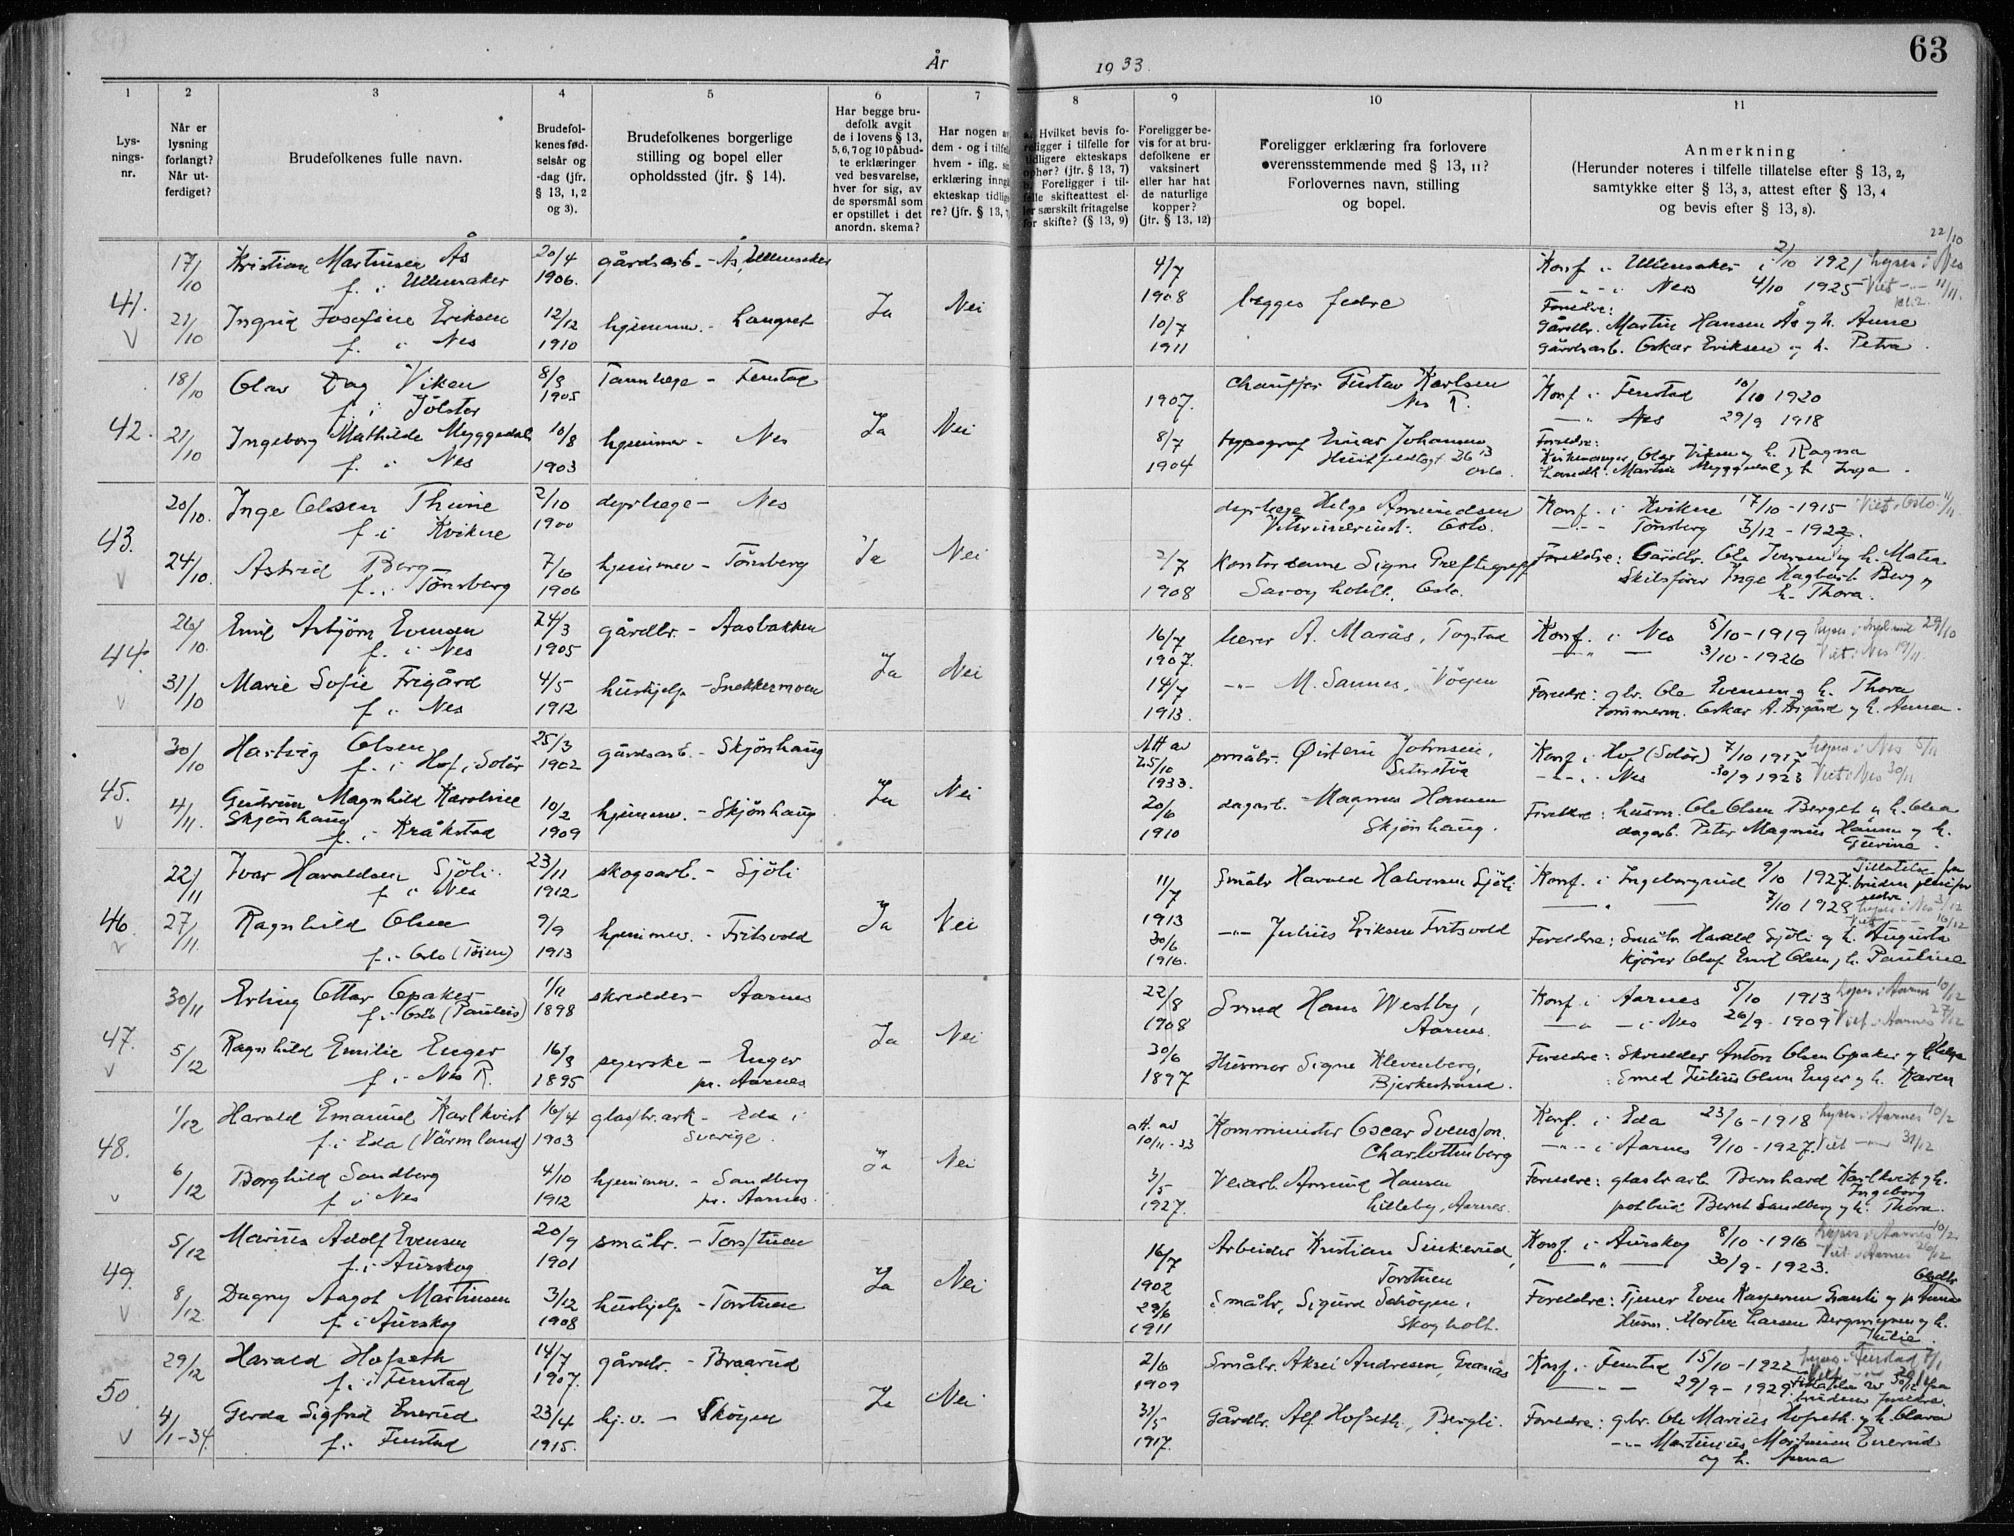 År 1933.
63
1 2 3 4 5 6 7 8 9 10 11
Lys-
nings-
nr.
Når er
lysning
forlangt?
Når ut-
ferdiget?
Brudefolkenes fulle navn.
Brudefol-
kenes fød-
selsår og
-dag (jfr.
§ 13, 1, 2
og 3).
Brudefolkenes borgerlige
stilling og bopel eller
opholdssted (jfr. § 14).
Har begge bru-
defolk avgit
de i lovens § 13,
5, 6, 7 og 10 påbud-
te erklæringer
ved besvarelse,
hver for sig, av
de spørsmål som
er opstillet i det
anordn. skema?
Har nogen av
dem - og i tilfelle
hvem - iflg.
erklæring inngått
ekteskap tidlige-
re? (jfr. § 13, 7)
a. Hvilket bevis fo-
religger i tilfelle for
tidligere ekteskaps
ophør? (jfr. § 13, 7)
b. Foreligger i til-
felle skifteattest el-
ler særskilt fritagelse
for skifte? (§ 13, 9)
Foreligger be-
vis for at bru-
defolkene er
vaksinert
eller har hat
de naturlige
kopper?
(jfr. § 13, 12)
Foreligger erklæring fra forlovere
overensstemmende med § 13, 11?
Forlovernes navn, stilling
og bopel.
Anmerkning
(Herunder noteres i tilfelle tillatelse efter § 13, 2,
samtykke efter § 13, 3, attest efter § 13, 4
og bevis efter § 13, 8).
41.
17/10 Kristian Martinsen Ås 20/4 gårdsarb. - Ås, Ullensaker 4/7 Konf. i Ullensaker i 2/10 1921 lyses i Nes 22/10
f. i Ullensaker 1906. 1908 begges fedre - " - i Nes 4/10 1925 Viet - " - 11/11.
21/10 Ingrid Josefine Eriksen 12/12 hjemmev. - Langset Ja Nei 10/7 Foreldre:
f. i Nes 1910 1911 Gårdbr. Martin Hansen Ås og h. Anne
gårdsarb. Oskar Eriksen og h. Petra.
42.
18/10 Olav Dag Viken 8/3 Tannlege - Fenstad 1907. Chauffør Gustav Karlsen Konf. i Fenstad 10/10 1920
f. i Jølster 1905 Nes R. - " - Nes 29/9 1918
21/10 Ingeborg Mathilde Myggedal 10/8 hjemmev - Nes Ja Nei 8/7 typograf Einar Johansen Foreldre:
f. i Nes 1903 1904 Oslo. Kirkesanger Olav Viken og h. Ragna
Landh. Martin Myggedal og h. Inga.
43.
20/10. Inge Olsen Thune 2/10 dyrlege - Nes dyrlege Helge Amundsen Konf. i Kvikne 17/10 - 1915 Viet i Oslo 11/11.
f. i Kvikne 1900 Oslo. - " - Tønsberg 3/12 - 1922.
24/10. Astrid Berg 7/6 hjemmev - Tønsberg Ja Nei 2/7 Kontordame Signe Foreldre: Gårdbr. Ole Iversen og h. Matea
f. i Tønsberg 1906 1908 Savoy hotell, Oslo. Skibsfører Inge Hagbart Berg og
h. Thora.
44.
26/10. Emil Asbjørn Evensen 24/3 gårdbr. - Aasbakken 16/7 lærer A. Marås, Togstad Konf. i Nes 5/10 - 1919 29/10
f. i Nes 1905 1907. - " - 3/10 - 1926 Viet i Nes 19/11.
31/10 Marie Sofie Frigård 4/5 hushjelp - Snekkermoen Ja Nei 14/7 - " - M. Sannes, Vågen Foreldre: gbr. Ole Evensen og h. Thora
f. i Nes 1912 1913. tømmerm. Oskar A. Frigård og h. Anna.
45.
30/10 Hartvig Olsen 25/3 gårdsarb. - Skjønhaug Att av småbr. Øistein Johnsen, Konf. i Hof (Solør) 7/10 1917 lyses i Nes 5/11
f. i Hof, Solør 1902 25/10 1933. Seterstøa - " - i Nes 30/9 1923 Viet i Nes 30/11
4/11. Gudrun Magnhild Karoline 10/2 hjemmev. - Skjønhaug Ja Nei 20/6 dagarb. Magnus Hansen Foreldre: husm. Ole Olsen Berget og h. Olea
Skjønhaug 1909 1910 Skjønhaug. dagarb. Peter Magnus Hansen og h.
f. i Kråkstad Gurine.
46.
22/11 Ivar Haraldsen Sjöli. 23/11 skogsarb. - Sjöli 11/7 Småbr Harald Halvorsen Sjöli Konf. i Ingeborgrud 9/10 1927. Tillatelse fra
f. i Nes 1912 1913 - " - 7/10 1928 lyses i Nes 3/12
27/11. Ragnhild Olsen 9/9 hjemmev. - Fritsvold Ja Nei 30/6 - " - Julius Eriksen Fritsvold Foreldre: Småbr. Harald Sjöli og h. Augusta
f. i Oslo (Tøien) 1913 1916. kjører Olaf Emil Olsen, h. Pauline
47.
30/11 Erling Ottar Opaker 1/11 skredder - Aarnes 22/8 Smed Hans Westby, Konf. i Aarnes 5/10 1913 lyses i Aarnes 10/12
f. i Oslo (Paulus) 1898 1908 Aarnes. - " - i Nes 26/9 - 1909 Viet i Aarnes 27/12
5/12 Ragnhild Emilie Enger 16/3 syerske - Enger Ja Nei 30/6 Husmor Signe Klevenberg, Foreldre: Skredder Anton Olsen Opaker og h. Helga
f. i Nes R. 1895 pr. Aarnes 1897 Bjerkestrand. Smed Julius Olsen Enger og h. Karen
48.
1/12 Harald Emanuel Karlkvist 16/4 glasbr.arb - Eda i att. av Komminister Oscar Svensson. Konf. i Eda 23/6 - 1918 lyses i Aarnes 10/2
f. i Eda (Värmland) 1903 Sverige. 10/11 - 33 Charlottenberg - " - i Aarnes 9/10 - 1927. Viet - " - 31/12
6/12 Borghild Sandberg 4/10 hjemmev. - Sandberg Ja Nei 3/5 Veiarb. Amund Hansen Foreldre: glasbr.arb Bernhard Karlkvist og h. Ingeborg
f. i Nes 1912 pr. Aarnes. 1927. Lilleby, Aarnes. postbud Bernt Sandberg og h. Thora.
49.
5/12 Marius Adolf Evensen 20/9 småbr. - Torstuen 16/7 Arbeider Kristian Sinkerud, Konf. i Aurskog 8/10 - 1916 lyses i Aarnes 10/12
f. i Aurskog 1901 1902 Torstuen - " - 30/9 - 1923. Viet i Aarnes 26/12
8/12. Dagny Aagot Martinsen 3/12 hushjelp - Torstuen Ja Nei 29/6 Småbr. Sigurd Skogen, Foreldre: Tjener Even Kaspersen
f. i Aurskog 1908 1911 Skogholt. Husm. Morten Larsen og h.
Julie.
50.
29/12 Harald Hofseth 14/7 gårdbr. - Braarud 2/6 Småbr. Aksel Andresen, Granås Konf. i Fenstad 15/10 - 1922 lyses i Fenstad 7/1
f. i Fenstad 1907. 1909 - " - 29/9 - 1929. Tillatelse av 30/12 fra
4/1 - 34. Gerda Sigfrid Enerud 23/4 hj.v. - Skogen Ja Nei 31/5 Gårdbr. Alf Hofseth, Bergli. brudens foreldre.
f. i Fenstad 1915. 1917. Foreldre: gbr. Ole Marius Hofseth og h. Clara
- " - Martinius Enerud
og h. Anna